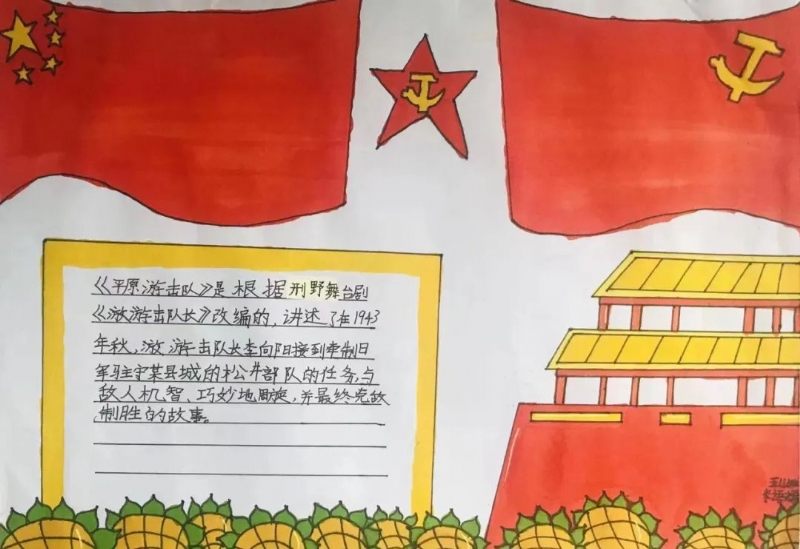 《平原游击队》是根据刑野舞台剧
《游击队长》改编的,讲述了在1943
年秋,游击队长李向阳接到牵制日
军驻守某县城的松井部队的任务,与
敌人机智、巧妙地周旋,并最终克敌
制胜的故事。